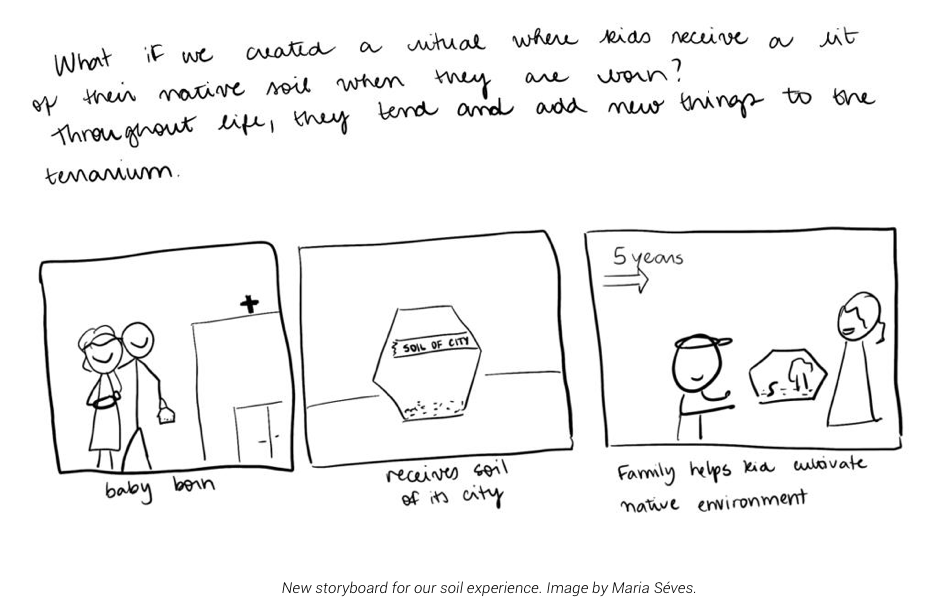 What if we created a ritual where kids receive a bit
of their native soil when they are born?
Throughout life, they tend and add new things to the
terrarium.
SOIL OF CITY
5 years
baby born
receives soil
of its city
Family helps kid cultivate
native environment
New storyboard for our soil experience. Image by Maria Séves.